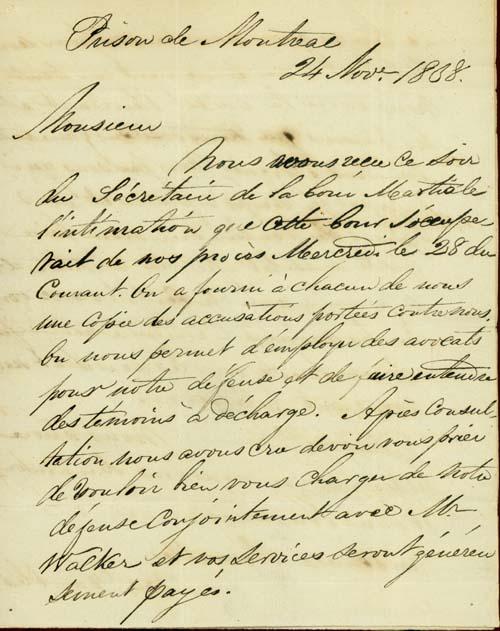 Prison de Montreal
24 Novr. 1838.
Monsieur
Nous avons recu ce soir
du Sécrétaire de la Cour Martiale
l'intimation que cette Cour s'occupe-
rait de nos procès Mercredi le 28 du
Courant. On a fourni à chacun de nous
une copie des accusations portées contre nous.
On nous permet d'employer des avocats
pour notre défense et de faire entendre
des temoins à décharge. Après Consul-
tation nous avons cru devoir vous prier
de vouloir bien vous charger de notre
défense Conjointement avec Mr
Walker et vos services seront généreu
sement payés.